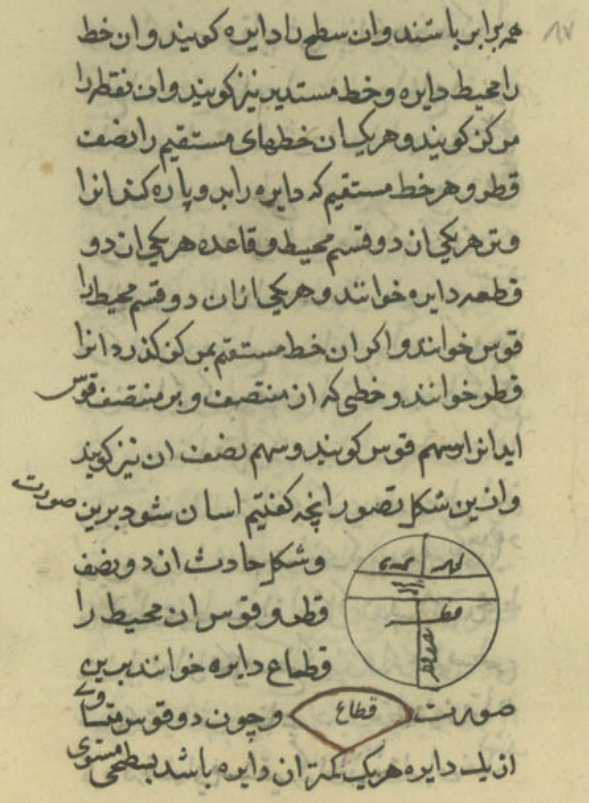 همه برابر باشند و ان سطح را دایره کویند و ان خط
را محیط دایره و خط مستدیر نیز کویند و ان نقطه را
مرکز کویند و هر یک از ان خطهای مستقیم را نصف
قطر و هر خط مستقیم که دایره را بدو پاره کند انرا
وتر هر یکی از ان دو قسم محیط و قاعده هر یکی از ان دو
قطعه دایره خوانند و هر یکی از ان دو قسم محیط را
قوس خوانند و اکر ان خط مستقیم بمرکز کذرد انرا
قطر خوانند و خطی که از منتصف وتر بمنتصف قوس
اید انرا سهم قوس کویند و سهم نصف ان نیز کویند
و ازین شکل تصور انچه کفتیم اسان شود برین صورت
و شکل حادث از دو نصف
قطر و قوس از محیط را
قطاع دایره خوانند برین
قطر
صورت قطاع و چون دو قوس متساوی
از یک دایره هر یک کمتر از دایره باشد بسطحی مستوی